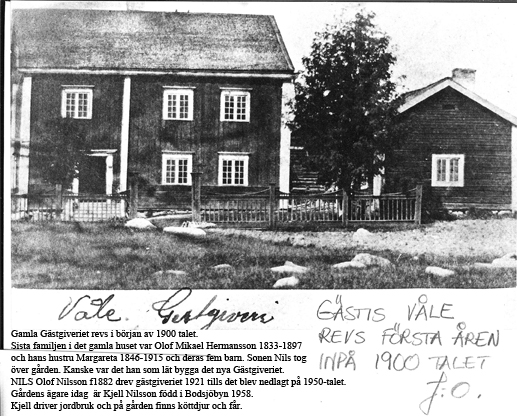 Våle. Gestgiveri
GÄSTIS VÅLE
REVS FÖRSTA ÅREN
INPÅ 1900 TALET
J:O.
Gamla Gästgiveriet revs i början av 1900 talet.
Sista familjen i det gamla huset var Olof Mikael Hermansson 1833-1897
och hans hustru Margareta 1846-1915 och deras fem barn. Sonen Nils tog
över gården. Kanske var det han som lät bygga det nya Gästgiveriet.
NILS Olof Nilsson f1882 drev gästgiveriet 1921 tills det blev nedlagt på 1950-talet.
Gårdens ägare idag är Kjell Nilsson född i Bodsjöbyn 1958.
Kjell driver jordbruk och på gården finns köttdjur och får.